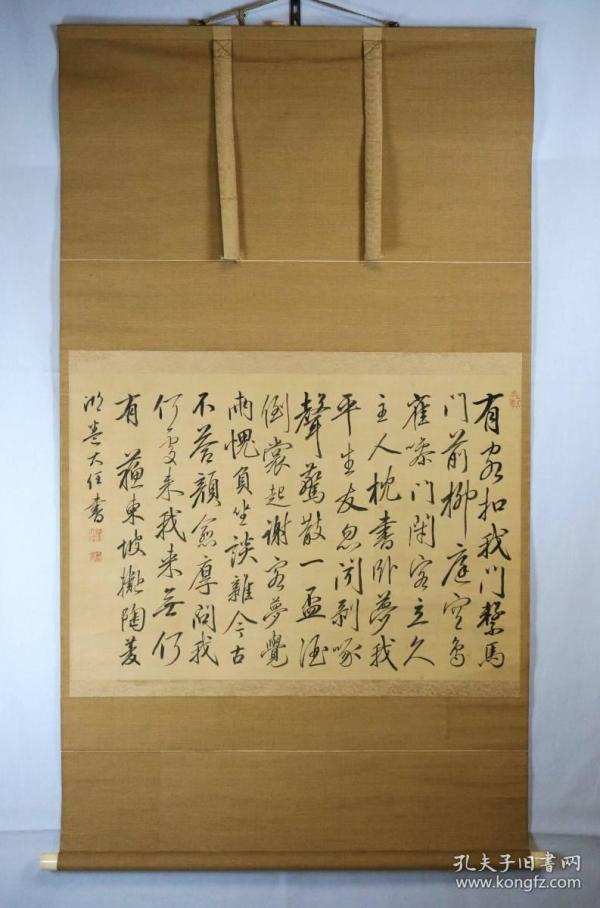 有客扣我門繫馬
門前柳庭空鳥
雀噪門閑客立久
主人枕書卧夢我
平生友忽聞剝啄
聲驚散一盃酒
倒裳起謝客夢覺
兩愧負坐談雜今古
不答顏愈厚問我
何處来我来無何
有 蘓東坡擬陶
大任書
孔夫子旧书网
www.kongfz.com